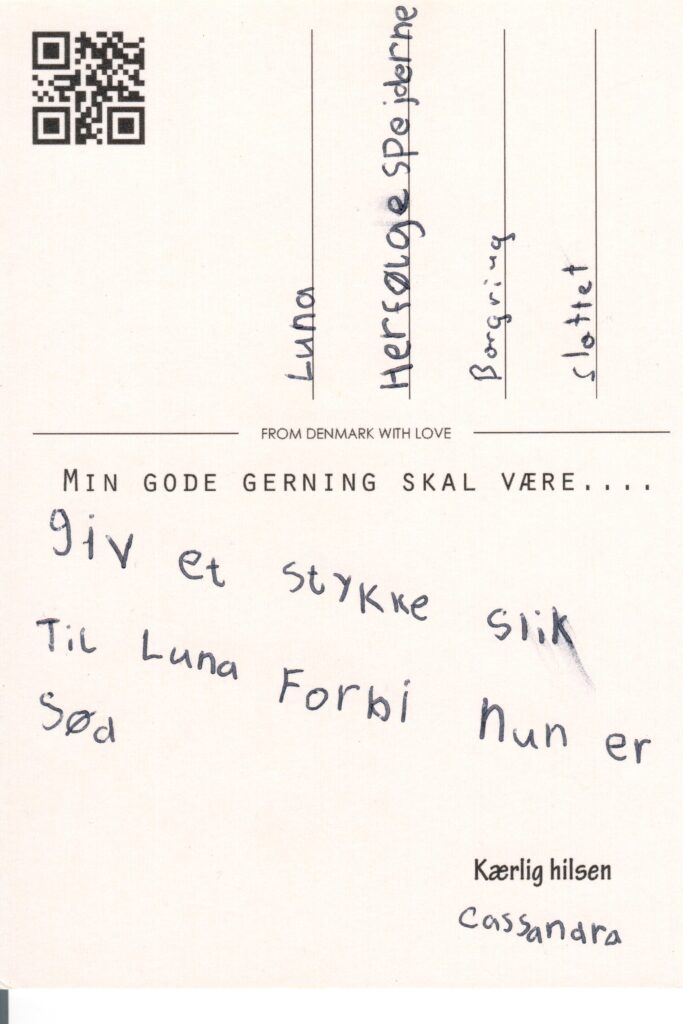 Luna
Herfølge SPejderne
Borgring
slottet
FROM DENMARK WITH LOVE
MIN GODE GERNING SKAL VÆRE....
giv et stykke slik
Til Luna Forbi hun er
Sød
Kærlig hilsen
Cassandra